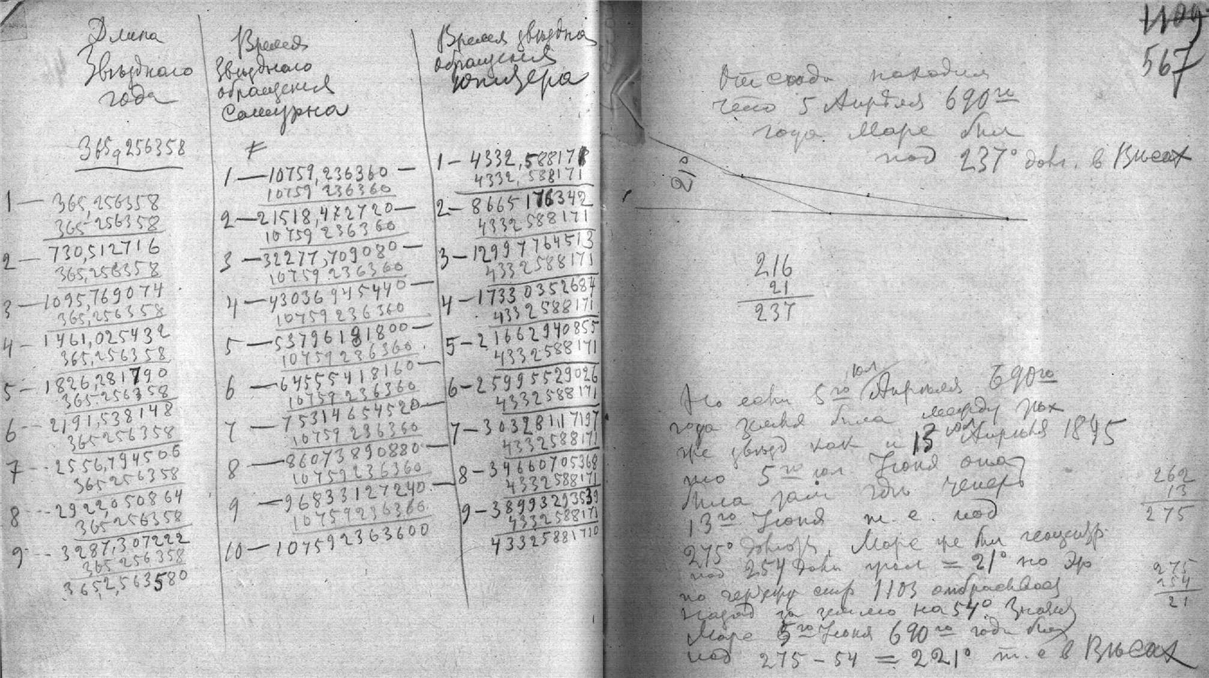 Длина
Звѣзднаго
года
365,256358
1 — 365,256358
365,256358
2 — 730,512716
365,256358
3 — 1095,769074
365,256358
4 — 1461,025432
365,256358
5 — 1826,281790
365,256358
6 — 2191,538148
365256358
7 — 2556,794506
365256358
8 — 2922,050864
365256358
9 — 3287,307222
365256358
3652,563580
Время
Звѣзднаго
обращенія
Сатурна
1 — 10759,236360 —
10759236360
2 — 21518,472720 —
10759236360
3 — 32277,709080 —
10759236360
4 — 43036945440 —
10759236360
5 — 53796181800 —
10759236360
6 — 64555418160 —
10759236360
7 — 75314654520 —
10759236360
8 — 86073890880 —
10759236360
9 — 96833127240 —
10759236360
10 — 107592363600
Время звѣздна
обращенія
Юпитера
1 — 4332,588171
4332,588171
2 — 8665176342
4332588171
3 — 12997764513
4332588171
4 — 17330352684
4332588171
5 — 21662940855
4332588171
6 — 25995529026
4332588171
7 — 30328117197
4332588171
8 — 34660705368
4332588171
9 — 38993293539
4332588171
43325881710
1109
567
Отсюда находим
что 5 Апрѣля 690го
года Марс был
под 237° долг. в Вѣсах
21°
216
21
237
Но если 5го юл Апрѣля 690го
года земля была между тѣх
же звѣзд как и 13 юл Апрѣля 1895
то 5го юл. Июня она
была там гдѣ теперь
13го Июня т. е. под
275° долготы. Марс же был геоцентр.
под 254 долг угол = 21° но
по чертежу стр 1103 отбрасывал
назад за землю на 54°. Значит
Марс 5го Июня 690го года был
под 275 — 54 = 221° т. е в Вѣсах
262
13
275
275
254
21